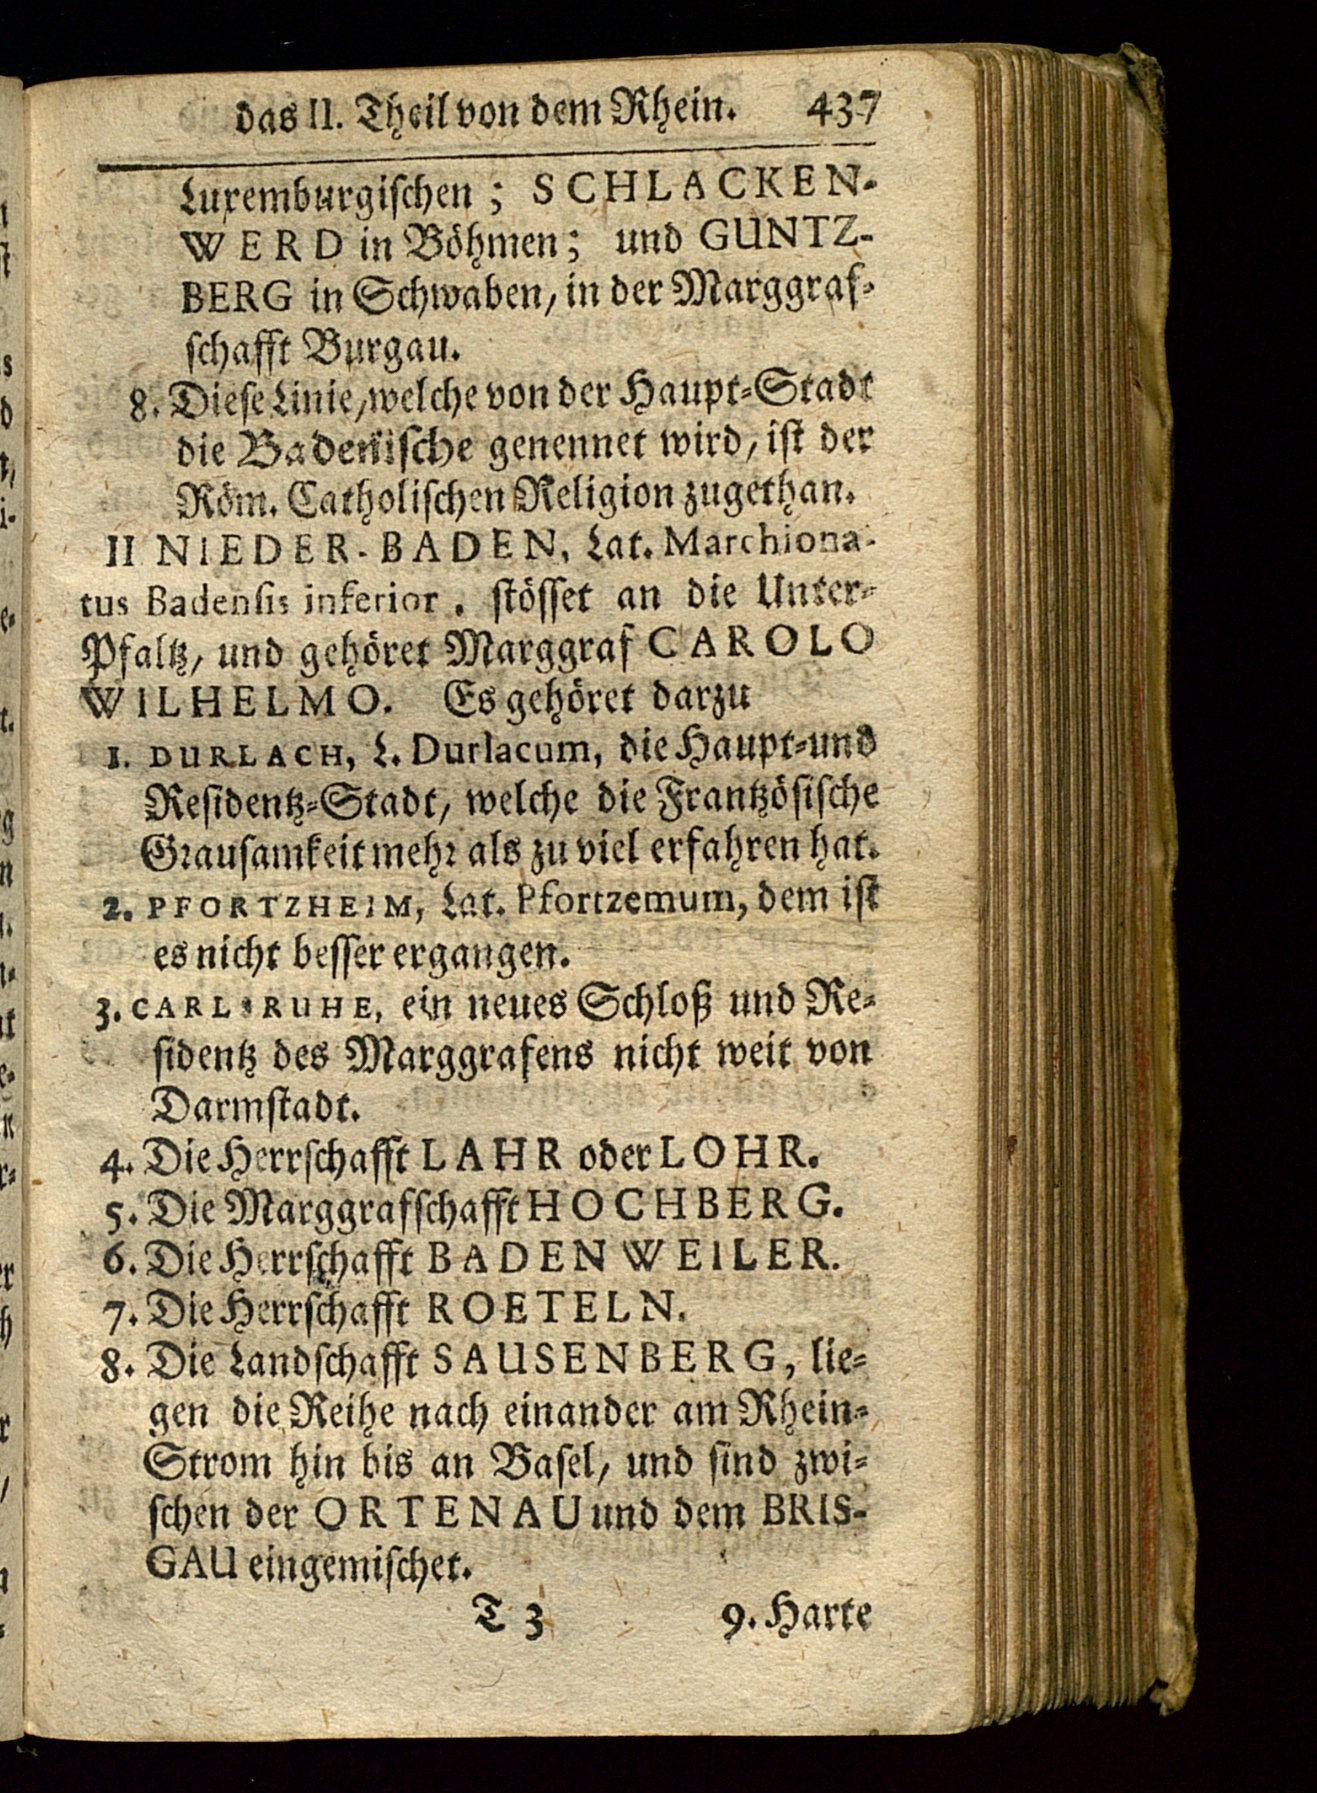 das II. Theil von dem Rhein. 437
Luxemburgischen; SCHLACKEN-
WERD in Böhmen; und GUNTZ-
BERG in Schwaben, in der Marggraf-
schafft Burgau.
8. Diese Linie, welche von der Haupt-Stadt
die Badenische genennet wird, ist der
Röm. Catholischen Religion zugethan.
II NIEDER-BADEN, Lat. Marchiona-
tus Badensis inferior, stösset an die Unter-
Pfaltz, und gehöret Marggraf CAROLO
WILHELMO. Es gehöret darzu
1. DURLACH, L. Durlacum, die Haupt-und
Residentz-Stadt, welche die Frantzösische
Grausamkeit mehr als zu viel erfahren hat.
2. PFORTZHEIM, Lat. Pfortzemum, dem ist
es nicht besser ergangen.
3. CARLSRUHE, ein neues Schloß und Re-
sidentz des Marggrafens nicht weit von
Darmstadt.
4. Die Herrschafft LAHR oder LOHR.
5. Die Marggrafschafft HOCHBERG.
6. Die Herrschafft BADENWEILER.
7. Die Herrschafft ROETELN.
8. Die Landschafft SAUSENBERG, lie-
gen die Reihe nach einander am Rhein-
Strom hin bis an Basel, und sind zwi-
schen der ORTENAU und dem BRIS-
GAU eingemischet.
T 3 9. Harte